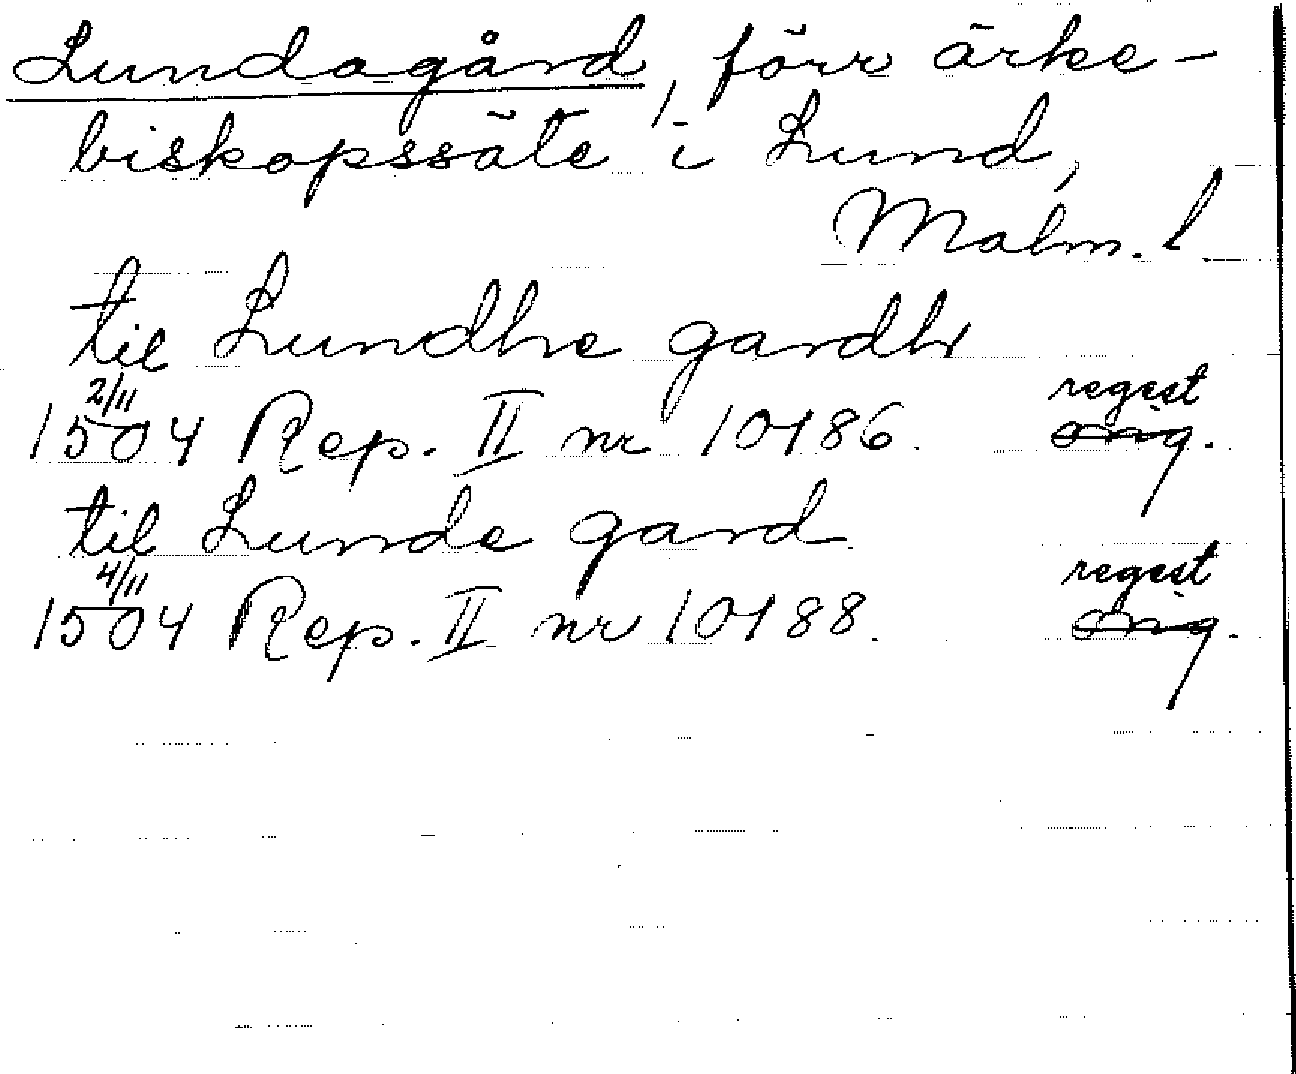 Lundagård, förr ärke-
biskopssäte i Lund,
Malm. l.
til Lundhe gardh
2/11 regest
1504 Rep. II nr 10186. orig.
til Lunde gard
4/11 regest
1504 Rep. II nr 10188. orig.